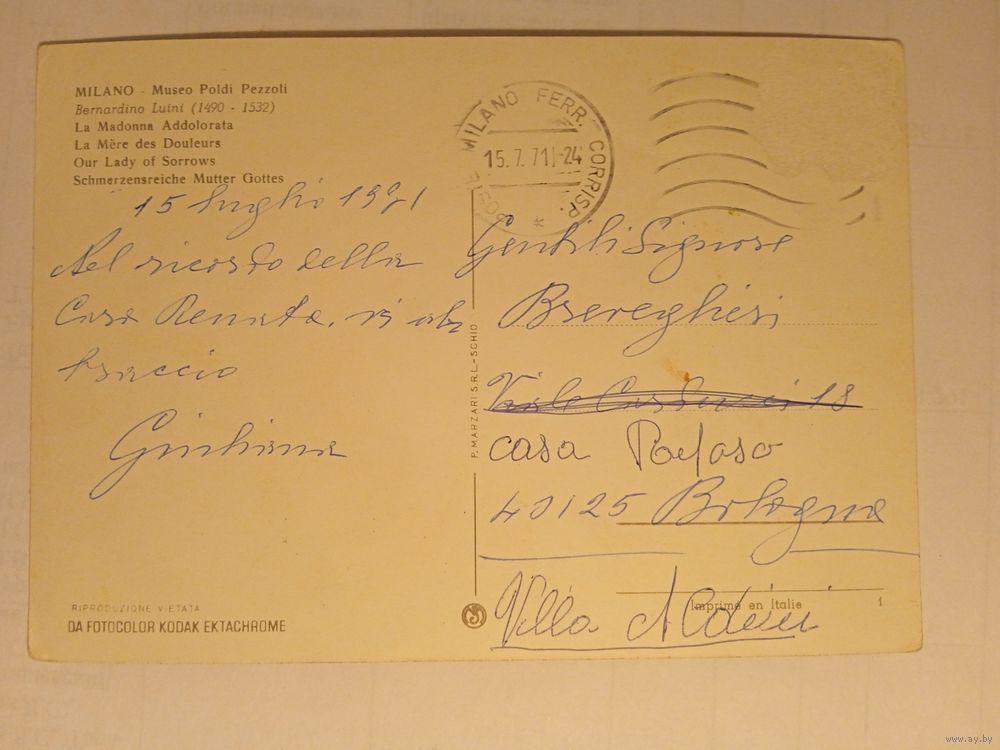 MILANO - Museo Poldi Pezzoli
Bernardino Luini (1490 - 1532)
La Madonna Addolorata
La Mère des Douleurs
Our Lady of Sorrows
Schmerzensreiche Mutter Gottes
15 luglio 1971
Nel ricordo della
Casa Renata. vi ab
braccio
Giuliana
RIPRODUZIONE VIETATA
DA FOTOCOLOR KODAK EKTACHROME
P. MARZARI S.R.L. - SCHIO
POSTE MILANO FERR. CORRISP.
15.7.71-24
Gentili Signore
Bsereghesi
Viale Carducci 18
casa Riposo
40125 Bologna
Villa Aldini
Imprimé en Italie 1
www.ay.by